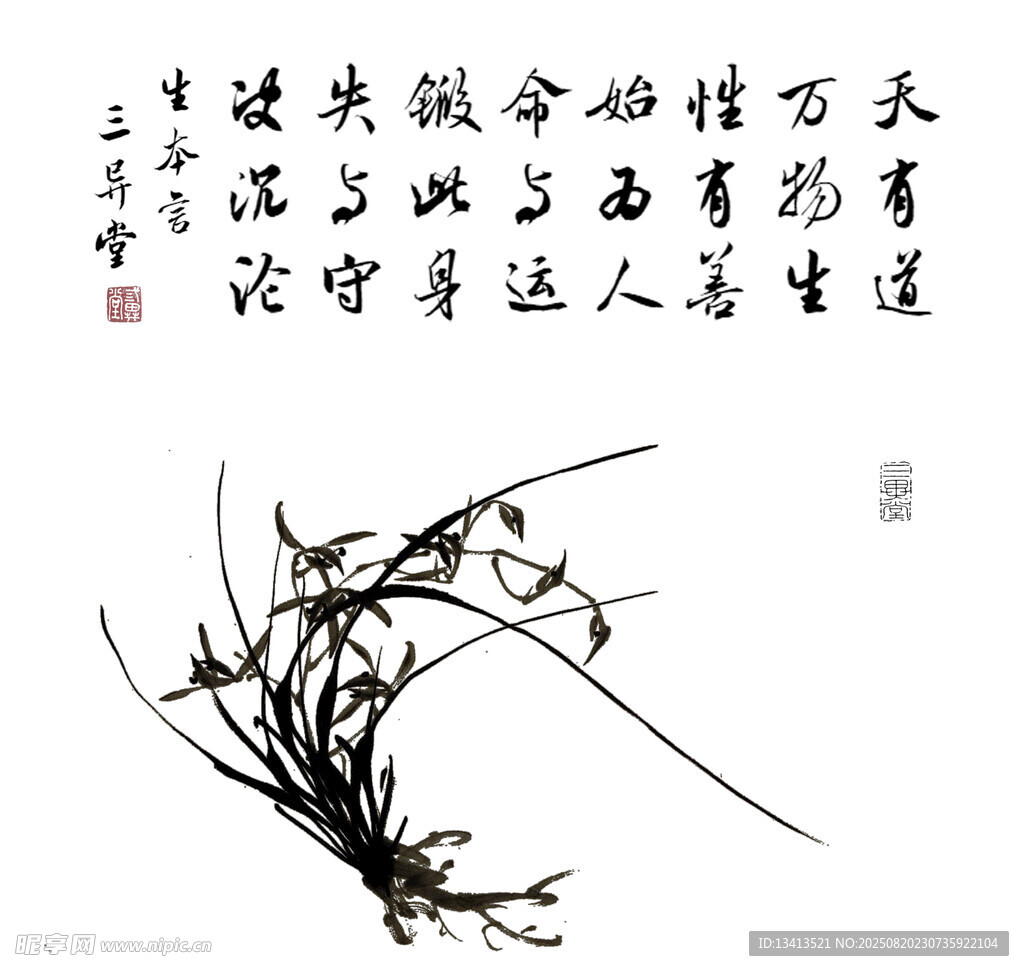 天有道
万物生
性有善
始为人
命与运
锻此身
失与守
决沉沦
生本言
三异堂
昵享网 www.nipic.cn
ID:13413521 NO:20250820230735922104